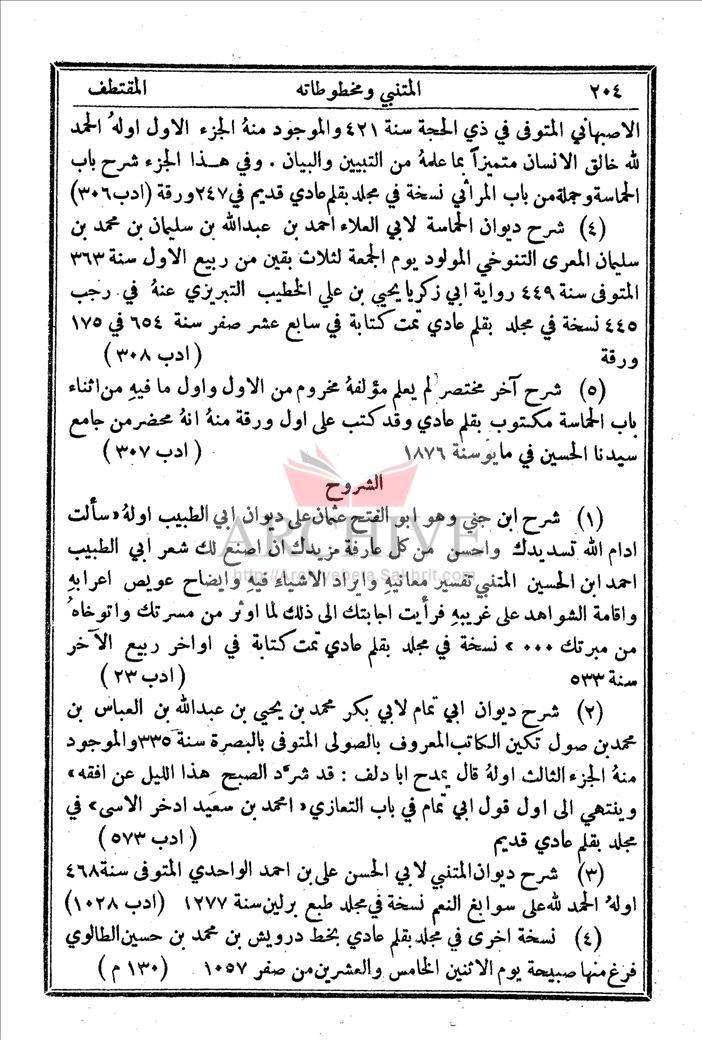 ٢٠٤ المتنبي ومخطوطاته المقتطف
الاصبهاني المتوفى في ذي الحجة سنة ٤٢١ والموجود منهُ الجزء الاول اولهُ الحمد
لله خالق الانسان متميزاً بما علمهُ من التبيين والبيان . وفي هذا الجزء شرح باب
الحماسة وجملة من باب المراثي نسخة في مجلد بقلم عادي قديم في ٢٤٧ ورقة (ادب ٣٠٦)
(٤) شرح ديوان الحماسة لابي العلاء احمد بن عبدالله بن سليمان بن محمد بن
سليمان المعرى التنوخي المولود يوم الجمعة لثلاث بقين من ربيع الاول سنة ٣٦٣
المتوفى سنة ٤٤٩ رواية ابي زكريا يحيى بن علي الخطيب التبريزي عنهُ في رجب
٤٤٥ نسخة في مجلد بقلم عادي تمت كتابة في سابع عشر صفر سنة ٦٥٤ في ١٧٥
ورقة (ادب ٣٠٨)
(٥) شرح آخر مختصر لم يعلم مؤلفهُ مخروم من الاول واول ما فيهِ من اثناء
باب الحماسة مكتوب بقلم عادي وقد كتب على اول ورقة منهُ انهُ محضر من جامع
سيدنا الحسين في مايو سنة ١٨٧٦ (ادب ٣٠٧)
الشروح
(١) شرح ابن جني وهو ابو الفتح عثمان على ديوان ابي الطبيب اولهُ «سألت
ادام الله تسديدك واحسن من كل عارفة مزيدك ان اصنع لك شعر ابي الطبيب
احمد ابن الحسين المتنبي تفسير معانيهِ وايراد الاشياء فيهِ وايضاح عويص اعرابهِ
واقامة الشواهد على غريبهِ فرأيت اجابتك الى ذلك لما اوثر من مسرتك واتوخاهُ
من مبرتك ... » نسخة في مجلد بقلم عادي تمت كتابة في اواخر ربيع الآخر
سنة ٥٣٣ (ادب ٢٣)
(٢) شرح ديوان ابي تمام لابي بكر محمد بن يحيى بن عبدالله بن العباس بن
محمد بن صول تكين الكاتب المعروف بالصولى المتوفى بالبصرة سنة ٣٣٥ والموجود
منهُ الجزء الثالث اولهُ قال يمدح ابا دلف : قد شرَّد الصبح هذا الليل عن افقه»
وينتهي الى اول قول ابي تمام في باب التعازي «احمد بن سعيد ادخر الاسى» في
مجلد بقلم عادي قديم (ادب ٥٧٣)
(٣) شرح ديوان المتنبي لابي الحسن على بن احمد الواحدي المتوفى سنة ٤٦٨
اولهُ الحمد لله على سوابغ النعم نسخة في مجلد طبع برلين سنة ١٢٧٧ (ادب ١٠٢٨)
(٤) نسخة اخرى في مجلد بقلم عادي بخط درويش بن محمد بن حسين الطالوي
فرغ منها صبيحة يوم الاثنين الخامس والعشرين من صفر ١٠٥٧ (١٣٠ م)
ARCHIVE
http://Archivebeta.Sakhrit.com